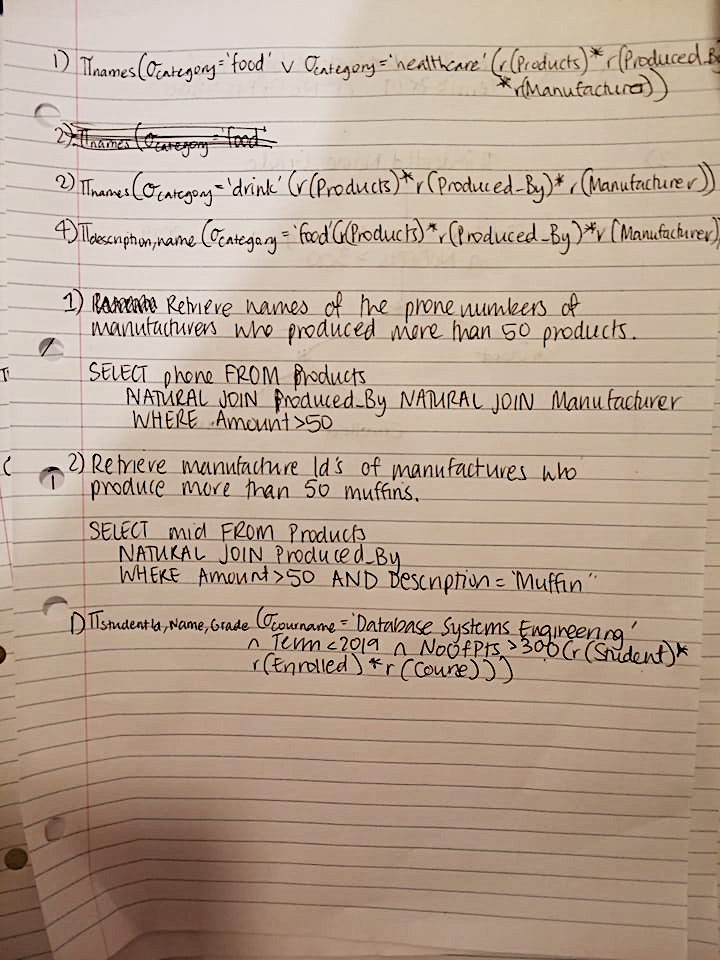 1) πnames(σcategory='food' ∨ σcategory='healthcare' (r(Products)*r(Produced_B
*r(Manufacturer))
2) πnames (σcategory = 'food'
2) πnames(σcategory='drink' (r(Products)*r(Produced_By)*r(Manufacturer))
4) πdescription,name (σcategory='food'(r(Products)*r(Produced_By)*r(Manufacturer)
1) Retrieve names of the phone numbers of
manufacturers who produced more than 50 products.
SELECT phone FROM Products
NATURAL JOIN Produced_By NATURAL JOIN Manufacturer
WHERE Amount>50
2) Retrieve manufacture Id's of manufactures who
produce more than 50 muffins.
SELECT mid FROM Products
NATURAL JOIN Produced_By
WHERE Amount>50 AND Description = 'Muffin"
1) πstudentId, Name, Grade (σcourname = 'Database Systems Engineering'
∧ Term<2019 ∧ NoOfPts >300 (r(Student)*
r(Enrolled)*r(Course)))